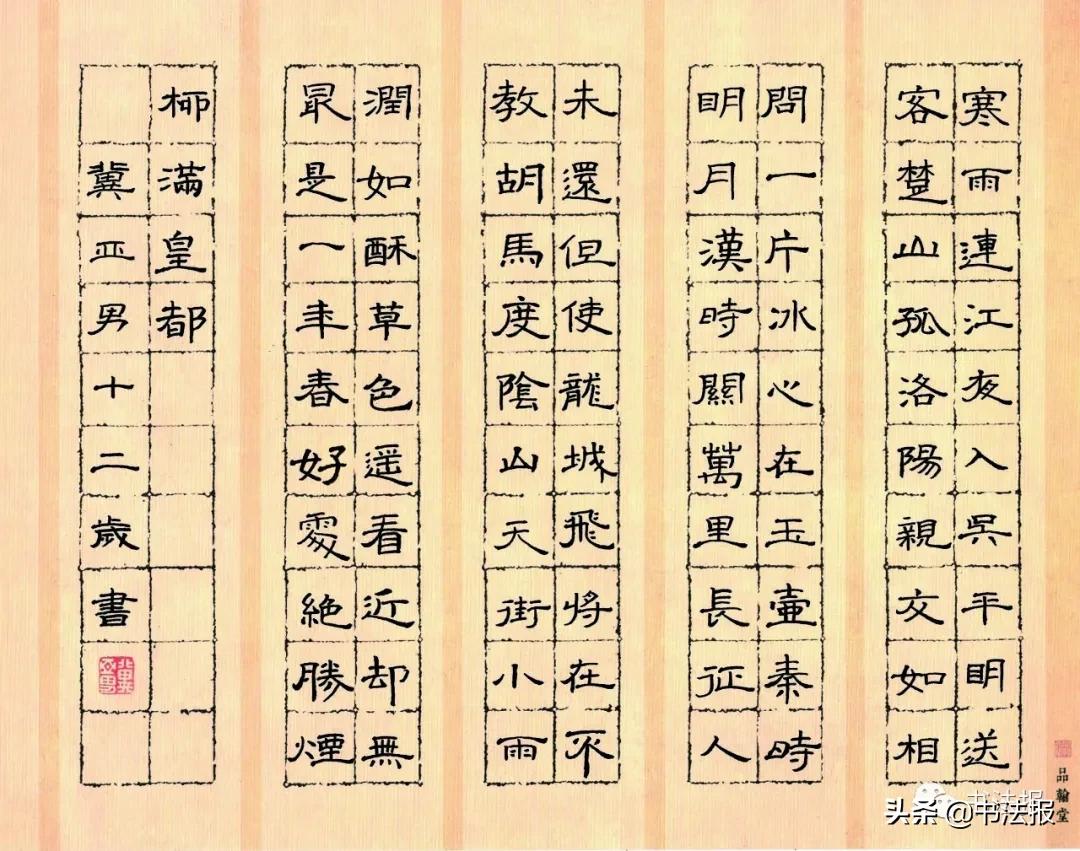 寒雨連江夜入吳平明送
客楚山孤洛陽親友如相
問一片冰心在玉壺秦時
明月漢時關萬里長征人
未還但使龍城飛將在不
教胡馬度陰山天街小雨
潤如酥草色遥看近却無
最是一年春好處絕勝煙
柳滿皇都
冀亚男十二歲書
品翰堂
书法报
头条 @书法报